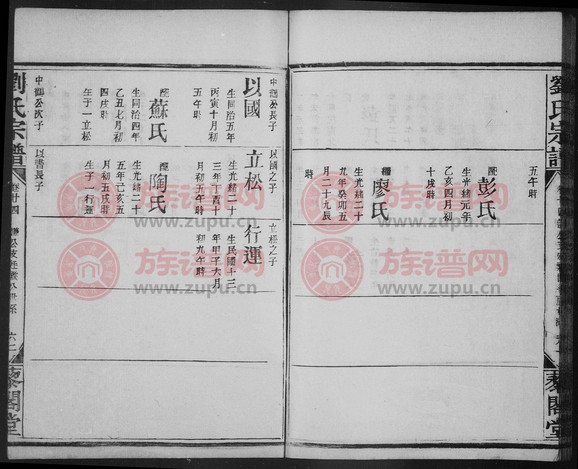 劉氏宗譜
五午時
配
彭氏
生光緒二十
乙亥四月初
十戌時
繼
廖氏
生光緒二十
九年癸卯五
月二十九辰
時
中鶴公長子
以國
生同治五年
丙寅十月初
五午時
配
蘇氏
生同治四年
乙丑七月初
四戌時
生子一立松
中鶴公次子
以國之子
立松
生光緒二十
三年丁酉十
月初五午時
配
陶氏
生光緒二十
五年己亥五
月初五戌時
生子一行運
以書長子
立松之子
行運
生民國十三
年甲子六月
初九時
劉氏宗譜
卷廿四
六二
藜閣堂
藜閣堂
族谱网
www.zupu.cn
族谱网
www.zupu.cn
族谱网
www.zupu.cn
族谱网
www.zupu.cn